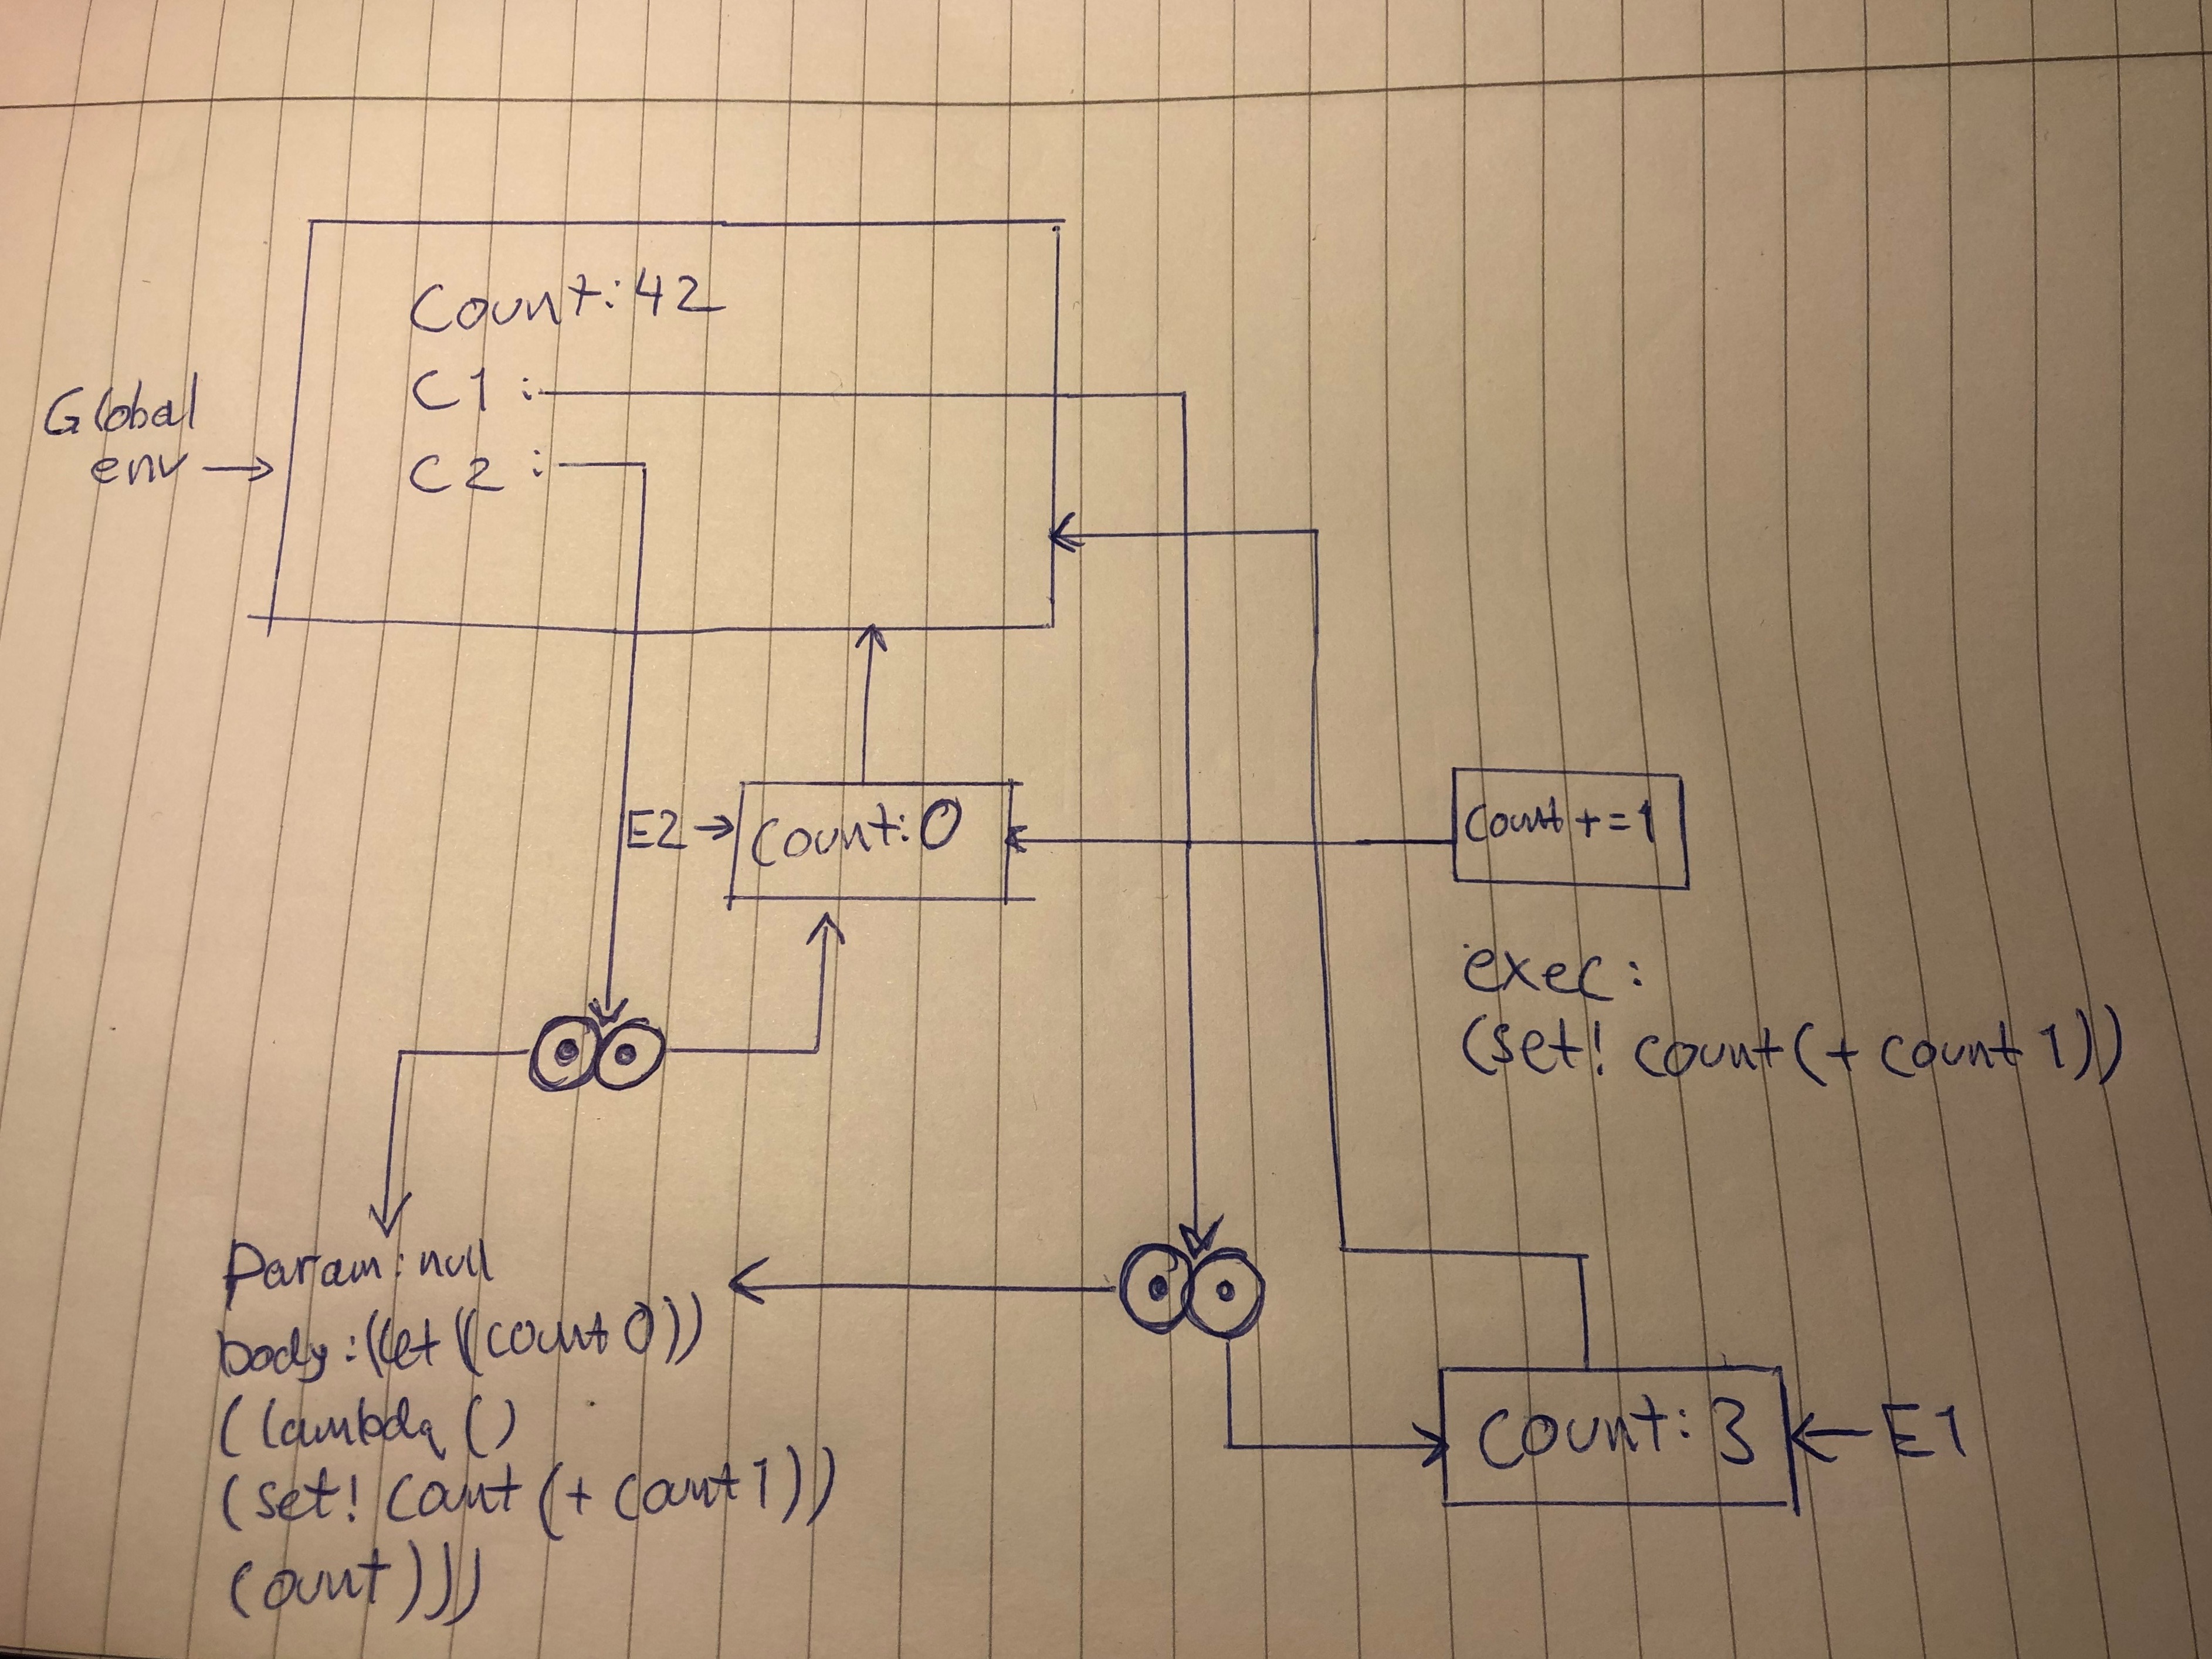 Count: 42
C1 :
C2 :
Global
env →
E2 →
Count: 0
Count += 1
exec:
(set! count (+ count 1))
Param: null
body: (let ((count 0))
(lambda ()
(set! count (+ count 1))
count)))
count: 3
← E1